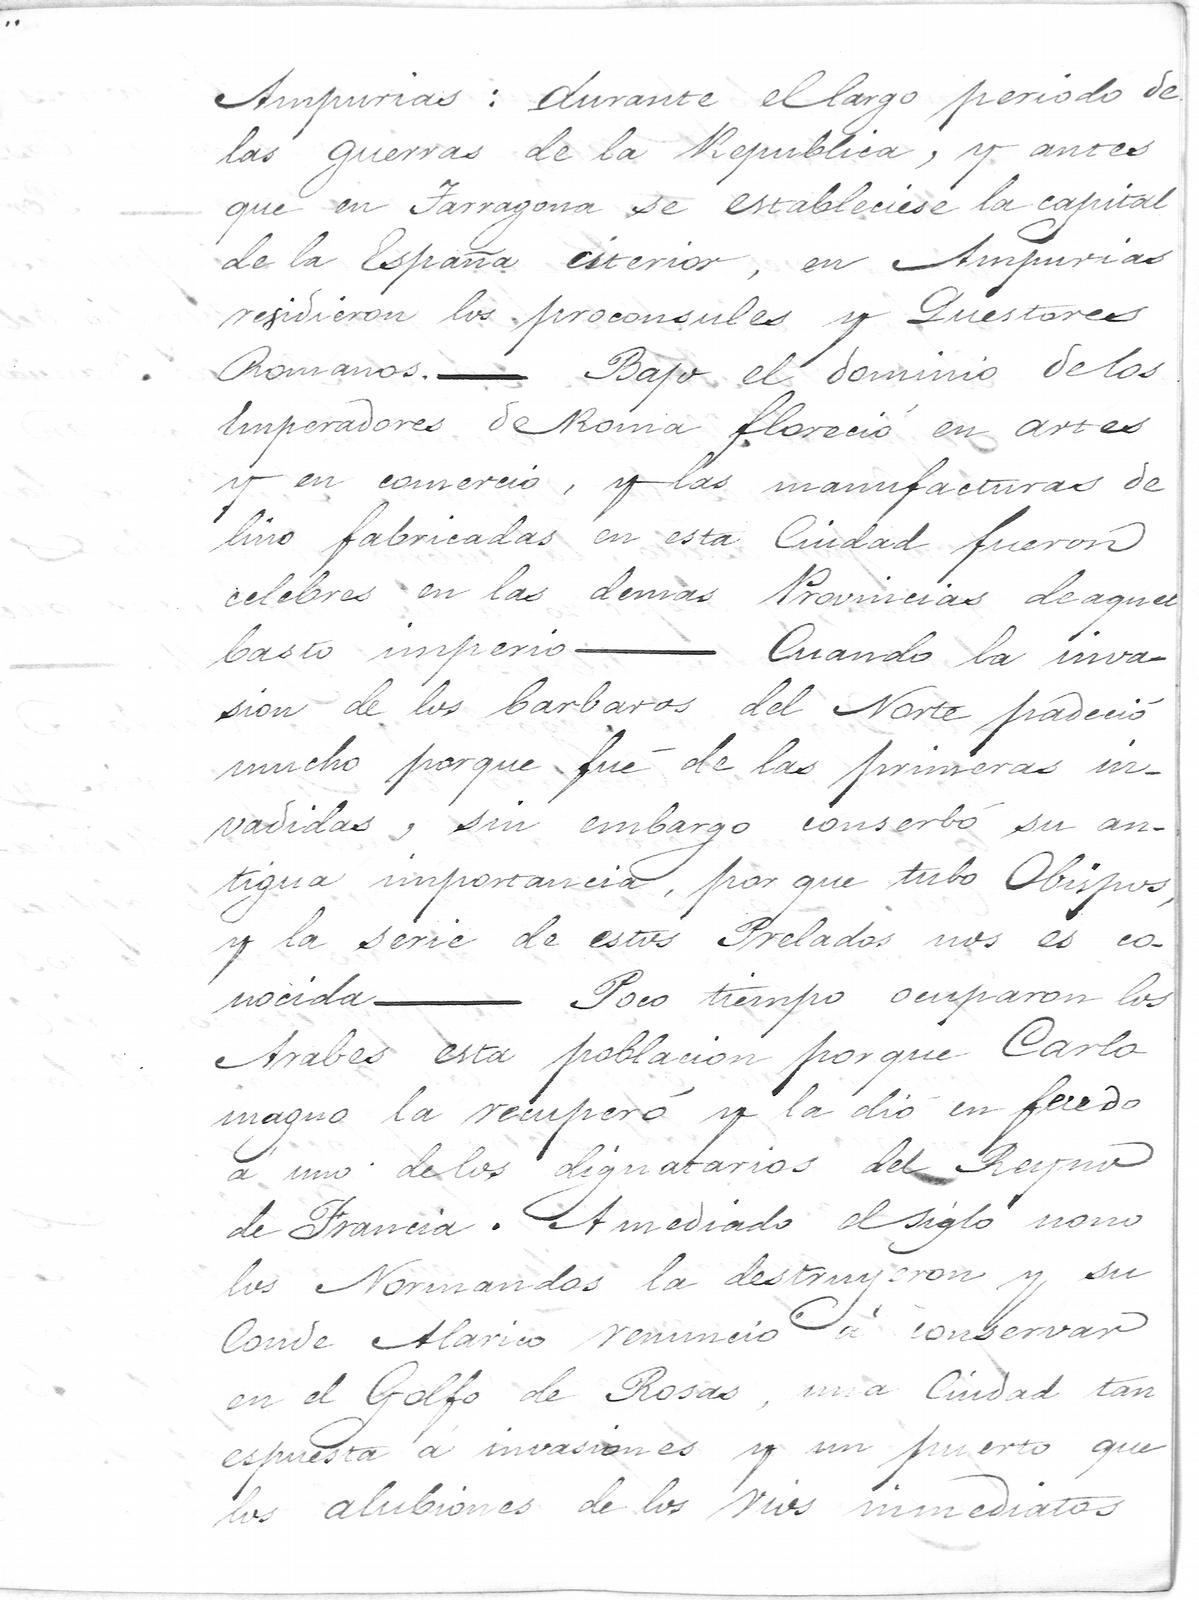 Ampurias : durante el largo periodo de
las guerras de la Republica, y antes
que en Tarragona se estableciese la capital
de la España citerior, en Ampurias
residieron los proconsules y Questores
Romanos. — Bajo el dominio de los
Imperadores de Roma floreció en artes
y en comercio, y las manufacturas de
lino fabricadas en esta Ciudad fueron
celebres en las demas Provincias de aquel
basto imperio — Cuando la inva-
sion de los barbaros del Norte padeció
mucho porque fué de las primeras in-
vadidas, sin embargo conserbó su an-
tigua importancia, por que tubo Obispos,
y la serie de estos Prelados nos es co-
nocida — Poco tiempo ocuparon los
Arabes esta poblacion porque Carlo
magno la recuperó y la dió en feudo
á uno de los dignatarios del Reyno
de Francia. A mediado el siglo nono
los Normandos la destruyeron y su
Conde Alarico renunció á conservar
en el Golfo de Rosas, una Ciudad tan
espuesta á invasiones y un puerto que
los alubiones de los rios inmediatos